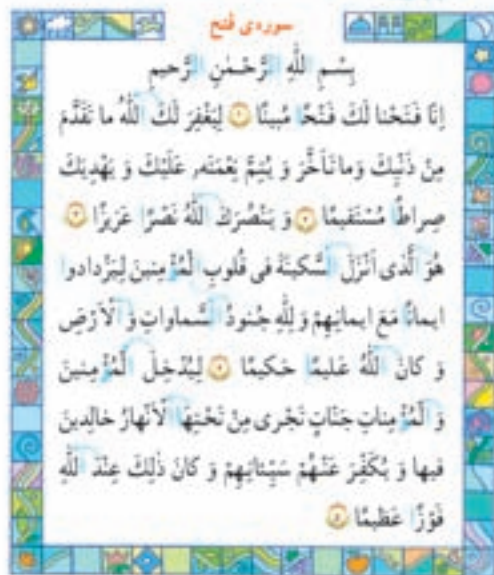 سوره‌ی فتح
بِسْمِ اللّٰهِ الرَّحْمٰنِ الرَّحیمِ
اِنّا فَتَحْنا لَكَ فَتْحًا مُبینًا ﴿۱﴾ لِیَغْفِرَ لَكَ اللّٰهُ ما تَقَدَّمَ
مِنْ ذَنْبِكَ وَ ما تَاَخَّرَ وَ یُتِمَّ نِعْمَتَه‌ُ عَلَیْكَ وَ یَهْدِیَكَ
صِراطًا مُسْتَقیمًا ﴿۲﴾ وَ یَنْصُرَكَ اللّٰهُ نَصْرًا عَزیزًا ﴿۳﴾
هُوَ الَّذی اَنْزَلَ السَّكینَةَ فی قُلوبِ الْمُؤْمِنینَ لِیَزْدادوا
ایمانًا مَعَ ایمانِهِمْ وَ لِلّٰهِ جُنودُ السَّماواتِ وَ الْاَرْضِ
وَ كانَ اللّٰهُ عَلیمًا حَكیمًا ﴿۴﴾ لِیُدْخِلَ الْمُؤْمِنینَ
وَ الْمُؤْمِناتِ جَنّاتٍ تَجْری مِنْ تَحْتِهَا الْاَنْهارُ خالِدینَ
فیها وَ یُكَفِّرَ عَنْهُمْ سَیِّئاتِهِمْ وَ كانَ ذٰلِكَ عِنْدَ اللّٰهِ
فَوْزًا عَظیمًا ﴿۵﴾